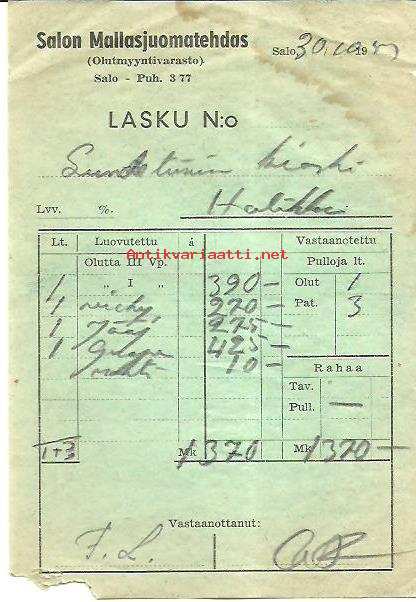 Salon Mallasjuomatehdas
(Olutmyyntivarasto)
Salo - Puh. 3 77
Salo, 30.10.19
LASKU N:o
kioski
Lvv. %. Halikko
Lt. Luovutettu à Vastaanotettu
Olutta III Vp. Pulloja lt.
1 „ I „ 390 — Olut 1
1 vichy 270 — Pat. 3
1 275 —
1 425 —
10 — Rahaa
Tav.
Pull. —
1+3 Mk 1370 Mk 1370 —
Vastaanottanut:
F. L.
Antikvariaatti.net